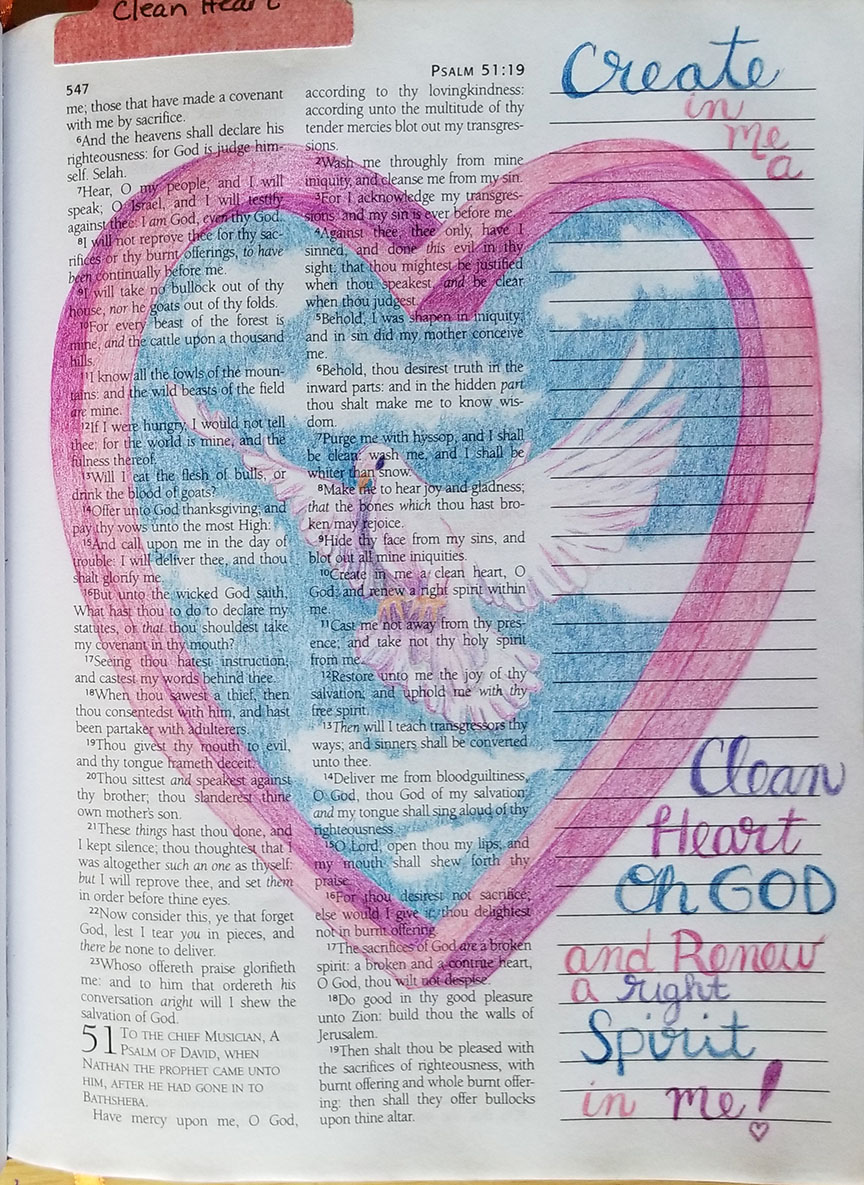 Clean Heart
547
PSALM 51:19
me; those that have made a covenant
with me by sacrifice.
6And the heavens shall declare his
righteousness: for God is judge him-
self. Selah.
7Hear, O my people, and I will
speak; O Israel, and I will testify
against thee: I am God, even thy God.
8I will not reprove thee for thy sac-
rifices or thy burnt offerings, to have
been continually before me.
9I will take no bullock out of thy
house, nor he goats out of thy folds.
10For every beast of the forest is
mine, and the cattle upon a thousand
hills.
11I know all the fowls of the moun-
tains: and the wild beasts of the field
are mine.
12If I were hungry, I would not tell
thee: for the world is mine, and the
fulness thereof.
13Will I eat the flesh of bulls, or
drink the blood of goats?
14Offer unto God thanksgiving; and
pay thy vows unto the most High:
15And call upon me in the day of
trouble: I will deliver thee, and thou
shalt glorify me.
16But unto the wicked God saith,
What hast thou to do to declare my
statutes, or that thou shouldest take
my covenant in thy mouth?
17Seeing thou hatest instruction,
and castest my words behind thee.
18When thou sawest a thief, then
thou consentedst with him, and hast
been partaker with adulterers.
19Thou givest thy mouth to evil,
and thy tongue frameth deceit.
20Thou sittest and speakest against
thy brother; thou slanderest thine
own mother's son.
21These things hast thou done, and
I kept silence; thou thoughtest that I
was altogether such an one as thyself:
but I will reprove thee, and set them
in order before thine eyes.
22Now consider this, ye that forget
God, lest I tear you in pieces, and
there be none to deliver.
23Whoso offereth praise glorifieth
me: and to him that ordereth his
conversation aright will I shew the
salvation of God.
51 TO THE CHIEF MUSICIAN, A
PSALM OF DAVID, WHEN
NATHAN THE PROPHET CAME UNTO
HIM, AFTER HE HAD GONE IN TO
BATHSHEBA.
Have mercy upon me, O God,
according to thy lovingkindness:
according unto the multitude of thy
tender mercies blot out my transgres-
sions.
2Wash me throughly from mine
iniquity, and cleanse me from my sin.
3For I acknowledge my transgres-
sions: and my sin is ever before me.
4Against thee, thee only, have I
sinned, and done this evil in thy
sight: that thou mightest be justified
when thou speakest, and be clear
when thou judgest.
5Behold, I was shapen in iniquity;
and in sin did my mother conceive
me.
6Behold, thou desirest truth in the
inward parts: and in the hidden part
thou shalt make me to know wis-
dom.
7Purge me with hyssop, and I shall
be clean: wash me, and I shall be
whiter than snow.
8Make me to hear joy and gladness;
that the bones which thou hast bro-
ken may rejoice.
9Hide thy face from my sins, and
blot out all mine iniquities.
10Create in me a clean heart, O
God; and renew a right spirit within
me.
11Cast me not away from thy pres-
ence; and take not thy holy spirit
from me.
12Restore unto me the joy of thy
salvation; and uphold me with thy
free spirit.
13Then will I teach transgressors thy
ways; and sinners shall be converted
unto thee.
14Deliver me from bloodguiltiness,
O God, thou God of my salvation:
and my tongue shall sing aloud of thy
righteousness.
15O Lord, open thou my lips; and
my mouth shall shew forth thy
praise.
16For thou desirest not sacrifice;
else would I give it: thou delightest
not in burnt offering.
17The sacrifices of God are a broken
spirit: a broken and a contrite heart,
O God, thou wilt not despise.
18Do good in thy good pleasure
unto Zion: build thou the walls of
Jerusalem.
19Then shalt thou be pleased with
the sacrifices of righteousness, with
burnt offering and whole burnt offer-
ing: then shall they offer bullocks
upon thine altar.
Create
in
me
a
Clean
Heart
Oh GOD
and Renew
a right
Spirit
in me!